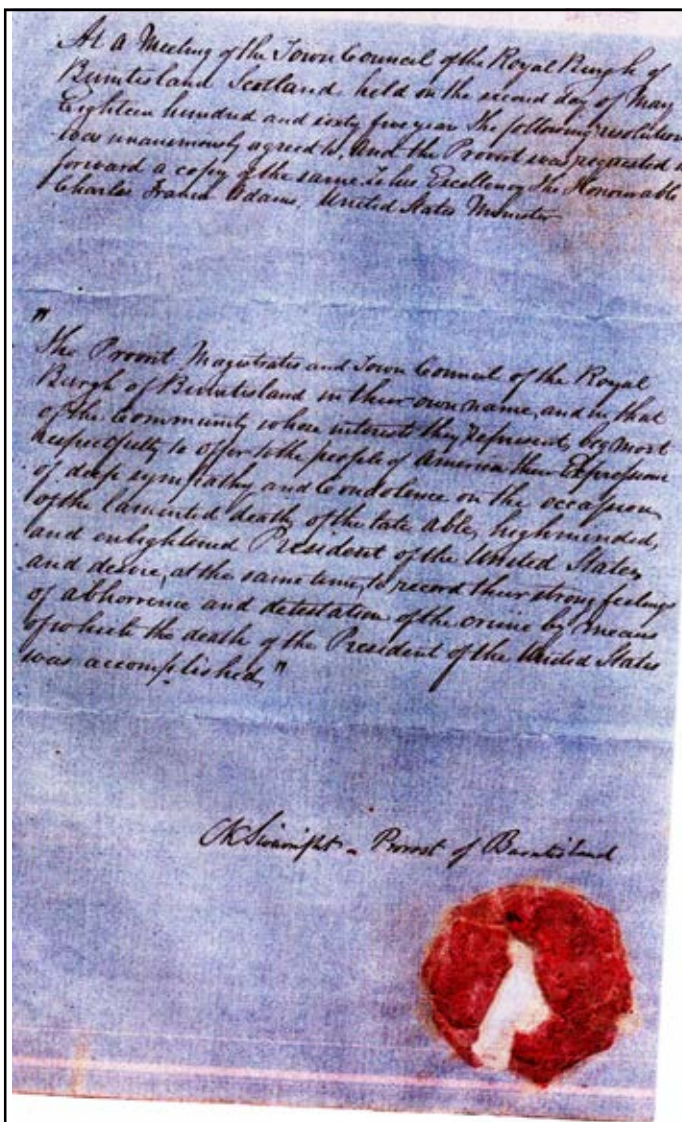 At a Meeting of the Town Council of the Royal Burgh of
Burntisland Scotland held on the second day of May
Eighteen hundred and sixty five year The following resolution
was unanimously agreed to, and the Provost was requested
forward a copy of the same to his Excellency The Honourable
Charles Francis Adams, United States Minister
"
The Provost Magistrates and Town Council of the Royal
Burgh of Burntisland in their own name, and in that
of the Community whose interests they represent, beg most
respectfully to offer to the people of America their Expression
of deep sympathy and Condolence on the occasion
of the lamented death of the late able, highminded,
and enlightened President of the United States,
and desire, at the same time, to record their strong feelings
of abhorrence and detestation of the crime by means
of which the death of the President of the United States
was accomplished,"
Provost of Burntisland